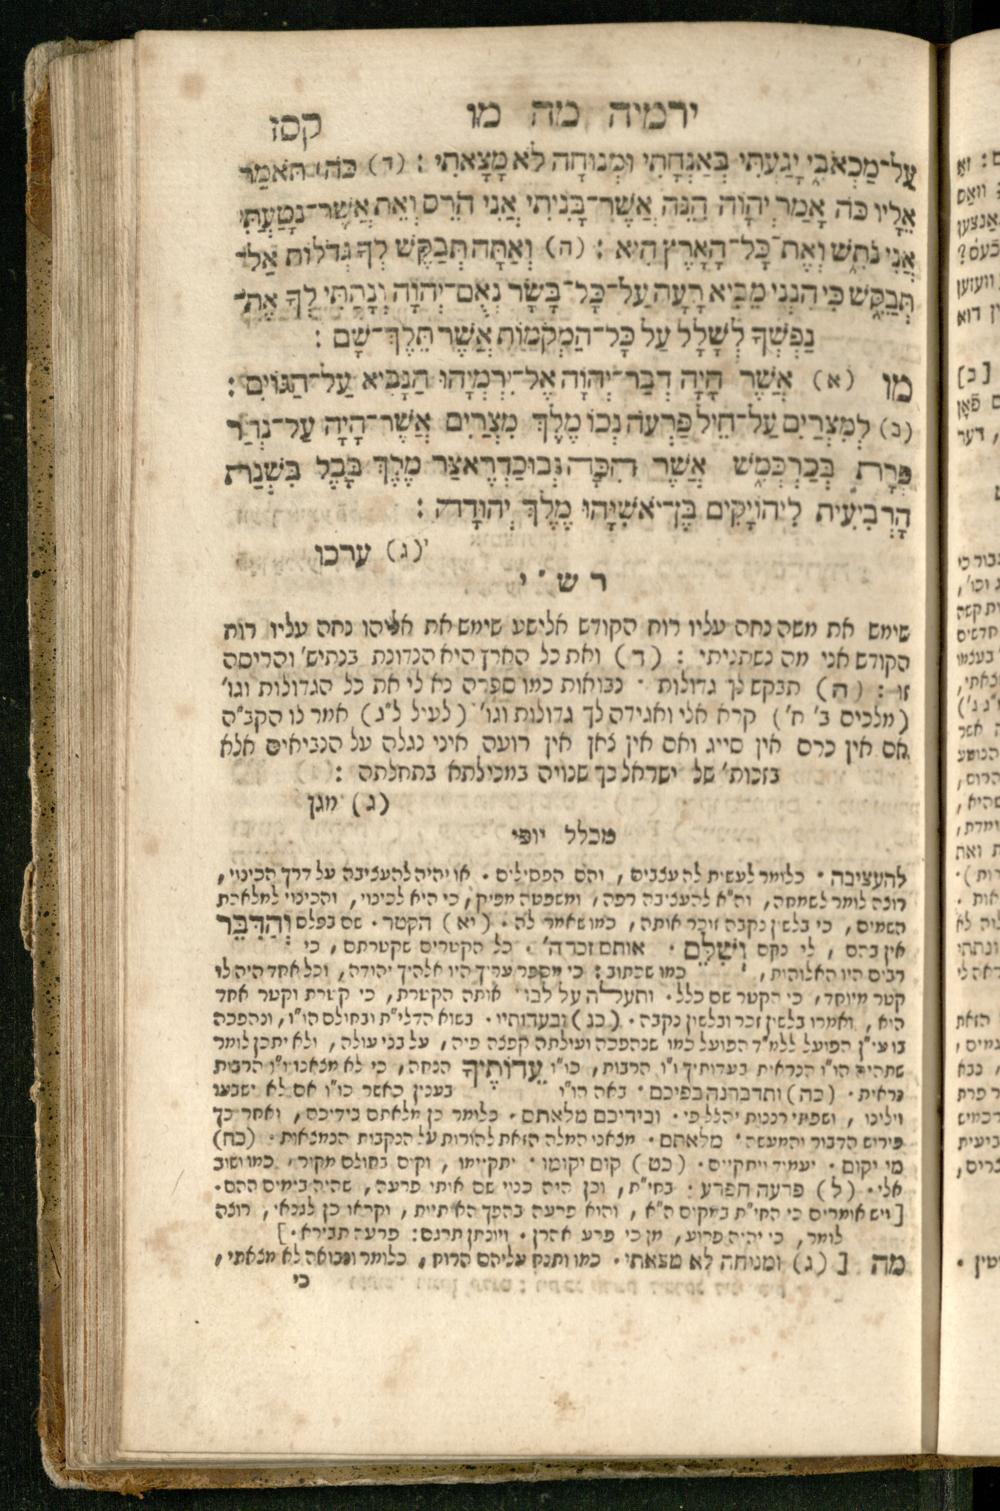 ירמיה מה מו
קסז
עַל־מַכְאֹבִי יָגַעְתִּי בְּאַנְחָתִי וּמְנוּחָה לֹא מָצָאתִי : (ד) כֹּה תֹּאמַר
אֵלָיו כֹּה אָמַר יְהוָֹה הִנֵּה אֲשֶׁר־בָּנִיתִי אֲנִי הֹרֵס וְאֵת אֲשֶׁר־נָטַעְתִּי
אֲנִי נֹתֵשׁ וְאֶת־כָּל־הָאָרֶץ הִיא : (ה) וְאַתָּה תְּבַקֶּשׁ לְךָ גְדֹלוֹת אַל־
תְּבַקֵּשׁ כִּי הִנְנִי מֵבִיא רָעָה עַל־כָּל־בָּשָׂר נְאֻם־יְהוָֹה וְנָתַתִּי לְךָ אֶת־
נַפְשְׁךָ לְשָׁלָל עַל כָּל־הַמְּקֹמוֹת אֲשֶׁר תֵּלֶךְ־שָׁם :
מו (א) אֲשֶׁר הָיָה דְבַר־יְהוָֹה אֶל־יִרְמְיָהוּ הַנָּבִיא עַל־הַגּוֹיִם :
(ב) לְמִצְרַיִם עַל־חֵיל פַּרְעֹה נְכוֹ מֶלֶךְ מִצְרַיִם אֲשֶׁר־הָיָה עַל־נְהַר
פְּרָת בְּכַרְכְּמִשׁ אֲשֶׁר הִכָּה נְבוּכַדְרֶאצַּר מֶלֶךְ בָּבֶל בִּשְׁנַת
הָרְבִיעִית לִיהוֹיָקִים בֶּן־יֹאשִׁיָּהוּ מֶלֶךְ יְהוּדָה :
(ג) ערכו
רש״י
שימש את משה נחה עליו רוח הקודש אלישע שימש את אליהו נחה עליו רוח
הקודש אני מה נשתניתי : (ד) ואת כל הארץ היא הנדונת בנתיש׳ והריסה
זו : (ה) תבקש לך גדולות ׳ נבואות כמו ספרה נא לי את כל הגדולות וגו׳
(מלכים ב׳ ח׳) קרא אלי ואגידה לך גדולות וגו׳ (לעיל ל״ג) אמר לו הקב״ה
אם אין כרם אין סייג ואם אין צאן אין רועה איני נגלה על הנביאים אלא
בזכות׳ של ישראל כך שנויה במכילתא בתחלתה :
(ג) מגן
מכלל יופי
להעציבה ׳ כלומר לעשות להעצבים , והם הפסילים ׳ או יהיה להעציבה על דרך הכינוי ,
רוצה לומר לשמחה, וה״א להעציבה רפה , ומשפטה מפיק , כי היא לכינוי , והכינוי למלאכת
השמים , כי בלשון נקבה זוכר אותה, כמו שאמר לה ׳ (יא) הקטר ׳ שם בפלס וְהַדִּבֵּר
אין בהם , לי נקם וְשִׁלֵּם ׳ אותם זכר ה׳ ׳ כל הקטרים שקטרתם , כי
רבים היו האלוהות , כמו שכתוב : כי מספר עריך היו אלהיך יהודה, וכל אחד היה לו
קטר מיוחד, כי הקטר שם כלל ׳ ותעלה על לבו ׳ אותה הקטרת, כי קטרת וקטר אחד
היא , ואמרו בלשון זכר ובלשון נקבה ׳ (כג) ובעדותיו ׳ בשוא הדלי״ת ובחולם הו״ו , ונהפכה
בו עי״ן הפועל ללמ״ד הפועל כמו שנהפכה ועולתה קפצה פיה, על בני עולה , ולא יתכן לומר
שתהיה הו״ו הנראית בעדותיך ו״ו הרבות , כו״ו עֵדוֹתֶיךָ הנחה, כי לא מצאנו ו״ו הרבות
נראית ׳ (כה) ותדברנה בפיכם ׳ באה הו״ו בענין כאשר כו״ו אם לא ישבעו
וילינו , ושפתי רננות יהלל פי ׳ ובידיכם מלאתם ׳ כלומר כן מלאתם בידיכם , ואחר כך
פירש הדבור והמעשה ׳ מלאתם ׳ מצאנו המלה הזאת להורות על הנקבות הנמצאות ׳ (כח)
מי יקום ׳ יעמיד ויתקיים ׳ (כט) קום יקומו ׳ יתקיימו , וקום בחולם מקור , כמו ושוב
אלי ׳ (ל) פרעה חפרע ׳ בחי״ת , וכן היה כנוי שם אותו פרעה, שהיה בימים ההם ׳
[ויש אומרים כי החי״ת במקום ה״א , והוא פרעה בהפך האותיות , וקראו כן לגנאי, רוצה
לומר, כי יהיה פרוע, מן כי פרע אהרן ׳ ויונתן תרגם: פרעה תבירא ׳]
מה [ (ג) ומנוחה לא מצאתי ׳ כמו ותנח עליהם הרוח, כלומר ונבואה לא מצאתי ,
כי